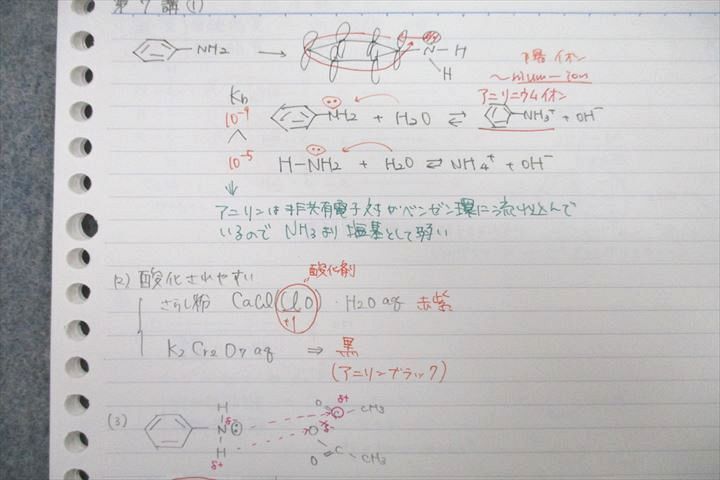 第7講(1)
NH2 → N H
H
陽イオン
〜nium-ion
アニリニウムイオン
Kb
10^-9 NH2 + H2O ⇄ NH3+ + OH-
10^-5 H-NH2 + H2O ⇄ NH4+ + OH-
アニリンは非共有電子対がベンゼン環に流れ込んで
いるので NH3より塩基として弱い
(2) 酸化されやすい
酸化剤
さらし粉 CaCl(ClO)・H2O aq 赤紫
+1
K2Cr2O7 aq ⇒ 黒
(アニリンブラック)
(3)
H O δ+ C CH3
N δ- O δ-
H δ+ O C CH3